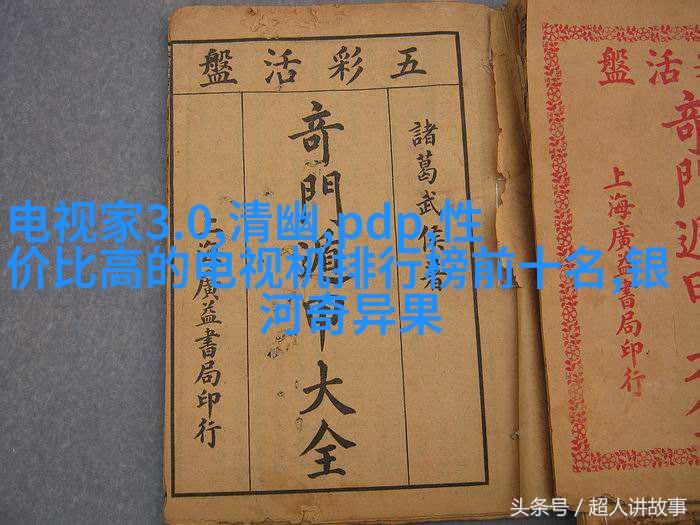 五彩活盤
諸葛武侯著
奇門遁甲大全
上海廣益書局印行
活盤
奇門遁甲大全
上海廣益書局印行
电视家3.0,清幽,pdp,性
价比高的电视机排行榜前十名,银
河奇异果
头条号 / 超人讲故事